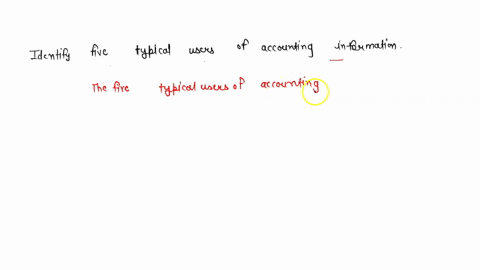 Identify five typical users of accounting information.
The five typical users of accounting